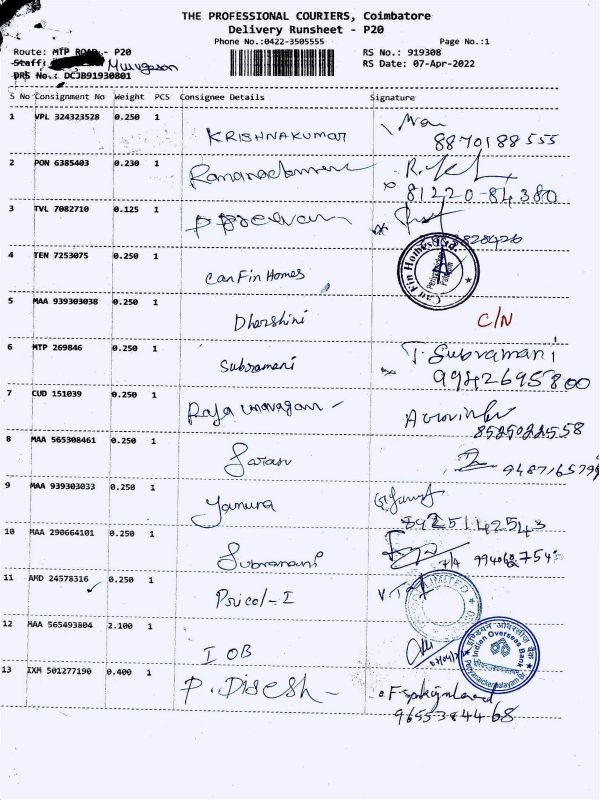 THE PROFESSIONAL COURIERS, Coimbatore
Delivery Runsheet - P20
Phone No.:0422-3505555 Page No.:1
Route: MTP ROAD - P20 RS No.: 919308
Staff: Murugesan RS Date: 07-Apr-2022
DRS No.: DCJB91930801
S No Consignment No Weight PCS Consignee Details Signature
1 VPL 324323528 0.250 1 KRISHNAKUMAR
8870188555
2 PON 6385403 0.230 1
81220-84380
3 TVL 7082710 0.125 1
4 TEN 7253075 0.250 1 CanFin Homes
Can Fin Homes Ltd.
5 MAA 939303038 0.250 1 Dharshini C/N
6 MTP 269846 0.250 1 Subramani T. Subramani
9942695800
7 CUD 151039 0.250 1 Raja
8525022558
8 MAA 565308461 0.250 1 Saran
9 MAA 939303033 0.250 1 Yamuna
8925142543
10 MAA 290664101 0.250 1 Subramani
7/4
11 AMD 24578316 0.250 1 Pricol-I
LIMITED
12 MAA 565493804 2.100 1 IOB
इण्डियन ओवरसीज़ बैंक
Indian Overseas Bank
Periyanaickenpalayam Br.
13 IXM 501277190 0.400 1 P. Dinesh
9655384468